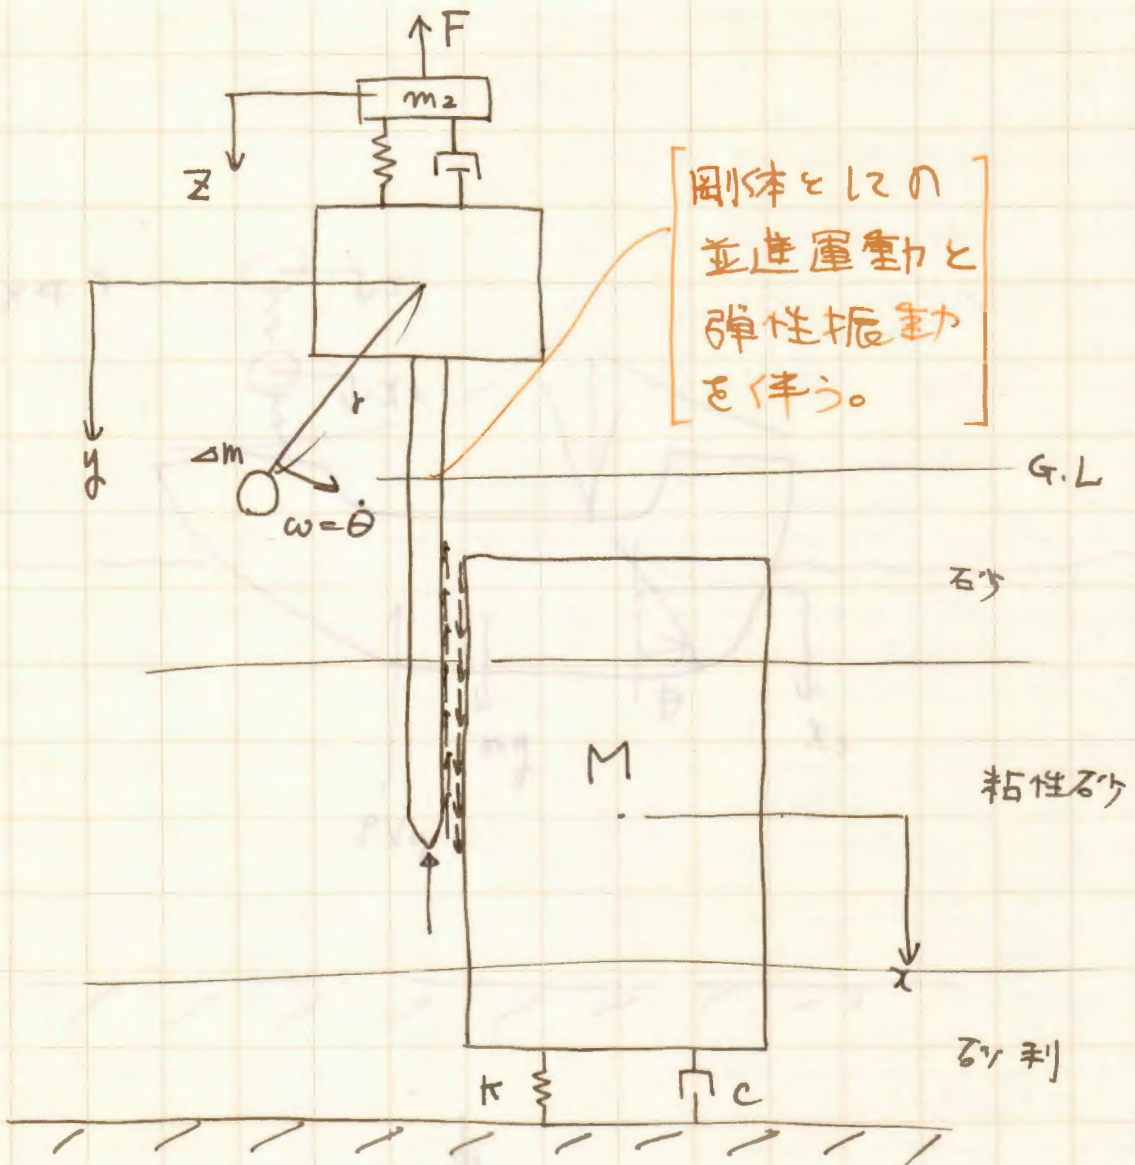 F
m2
z
剛体としての
並進運動と
弾性振動
を伴う。
r
y
Δm
ω=θ̇
G.L
砂
M
粘性砂
x
砂利
k
c